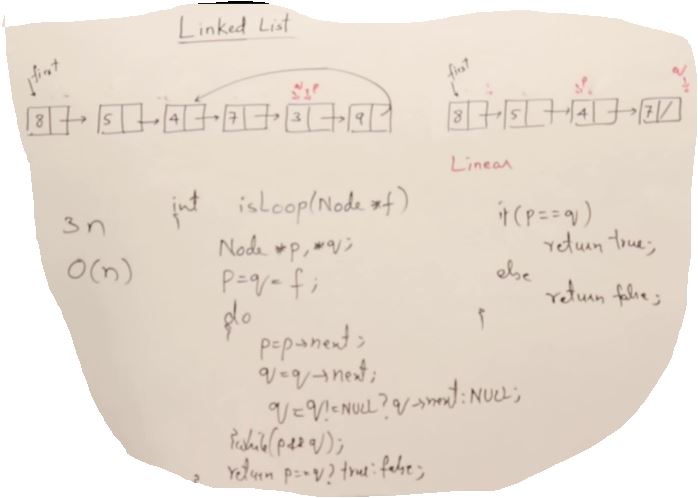 Linked List
first
8 5 4 7 3 9
q p
first
8 5 4 7 /
p
q
Linear
3n
O(n)
int isLoop(Node *f)
{
Node *p, *q;
p=q=f;
do
{
p=p→next;
q=q→next;
q=q!=NULL?q→next:NULL;
}while(p&&q);
return p==q?true:false;
}
if(p==q)
return true;
else
return false;
}